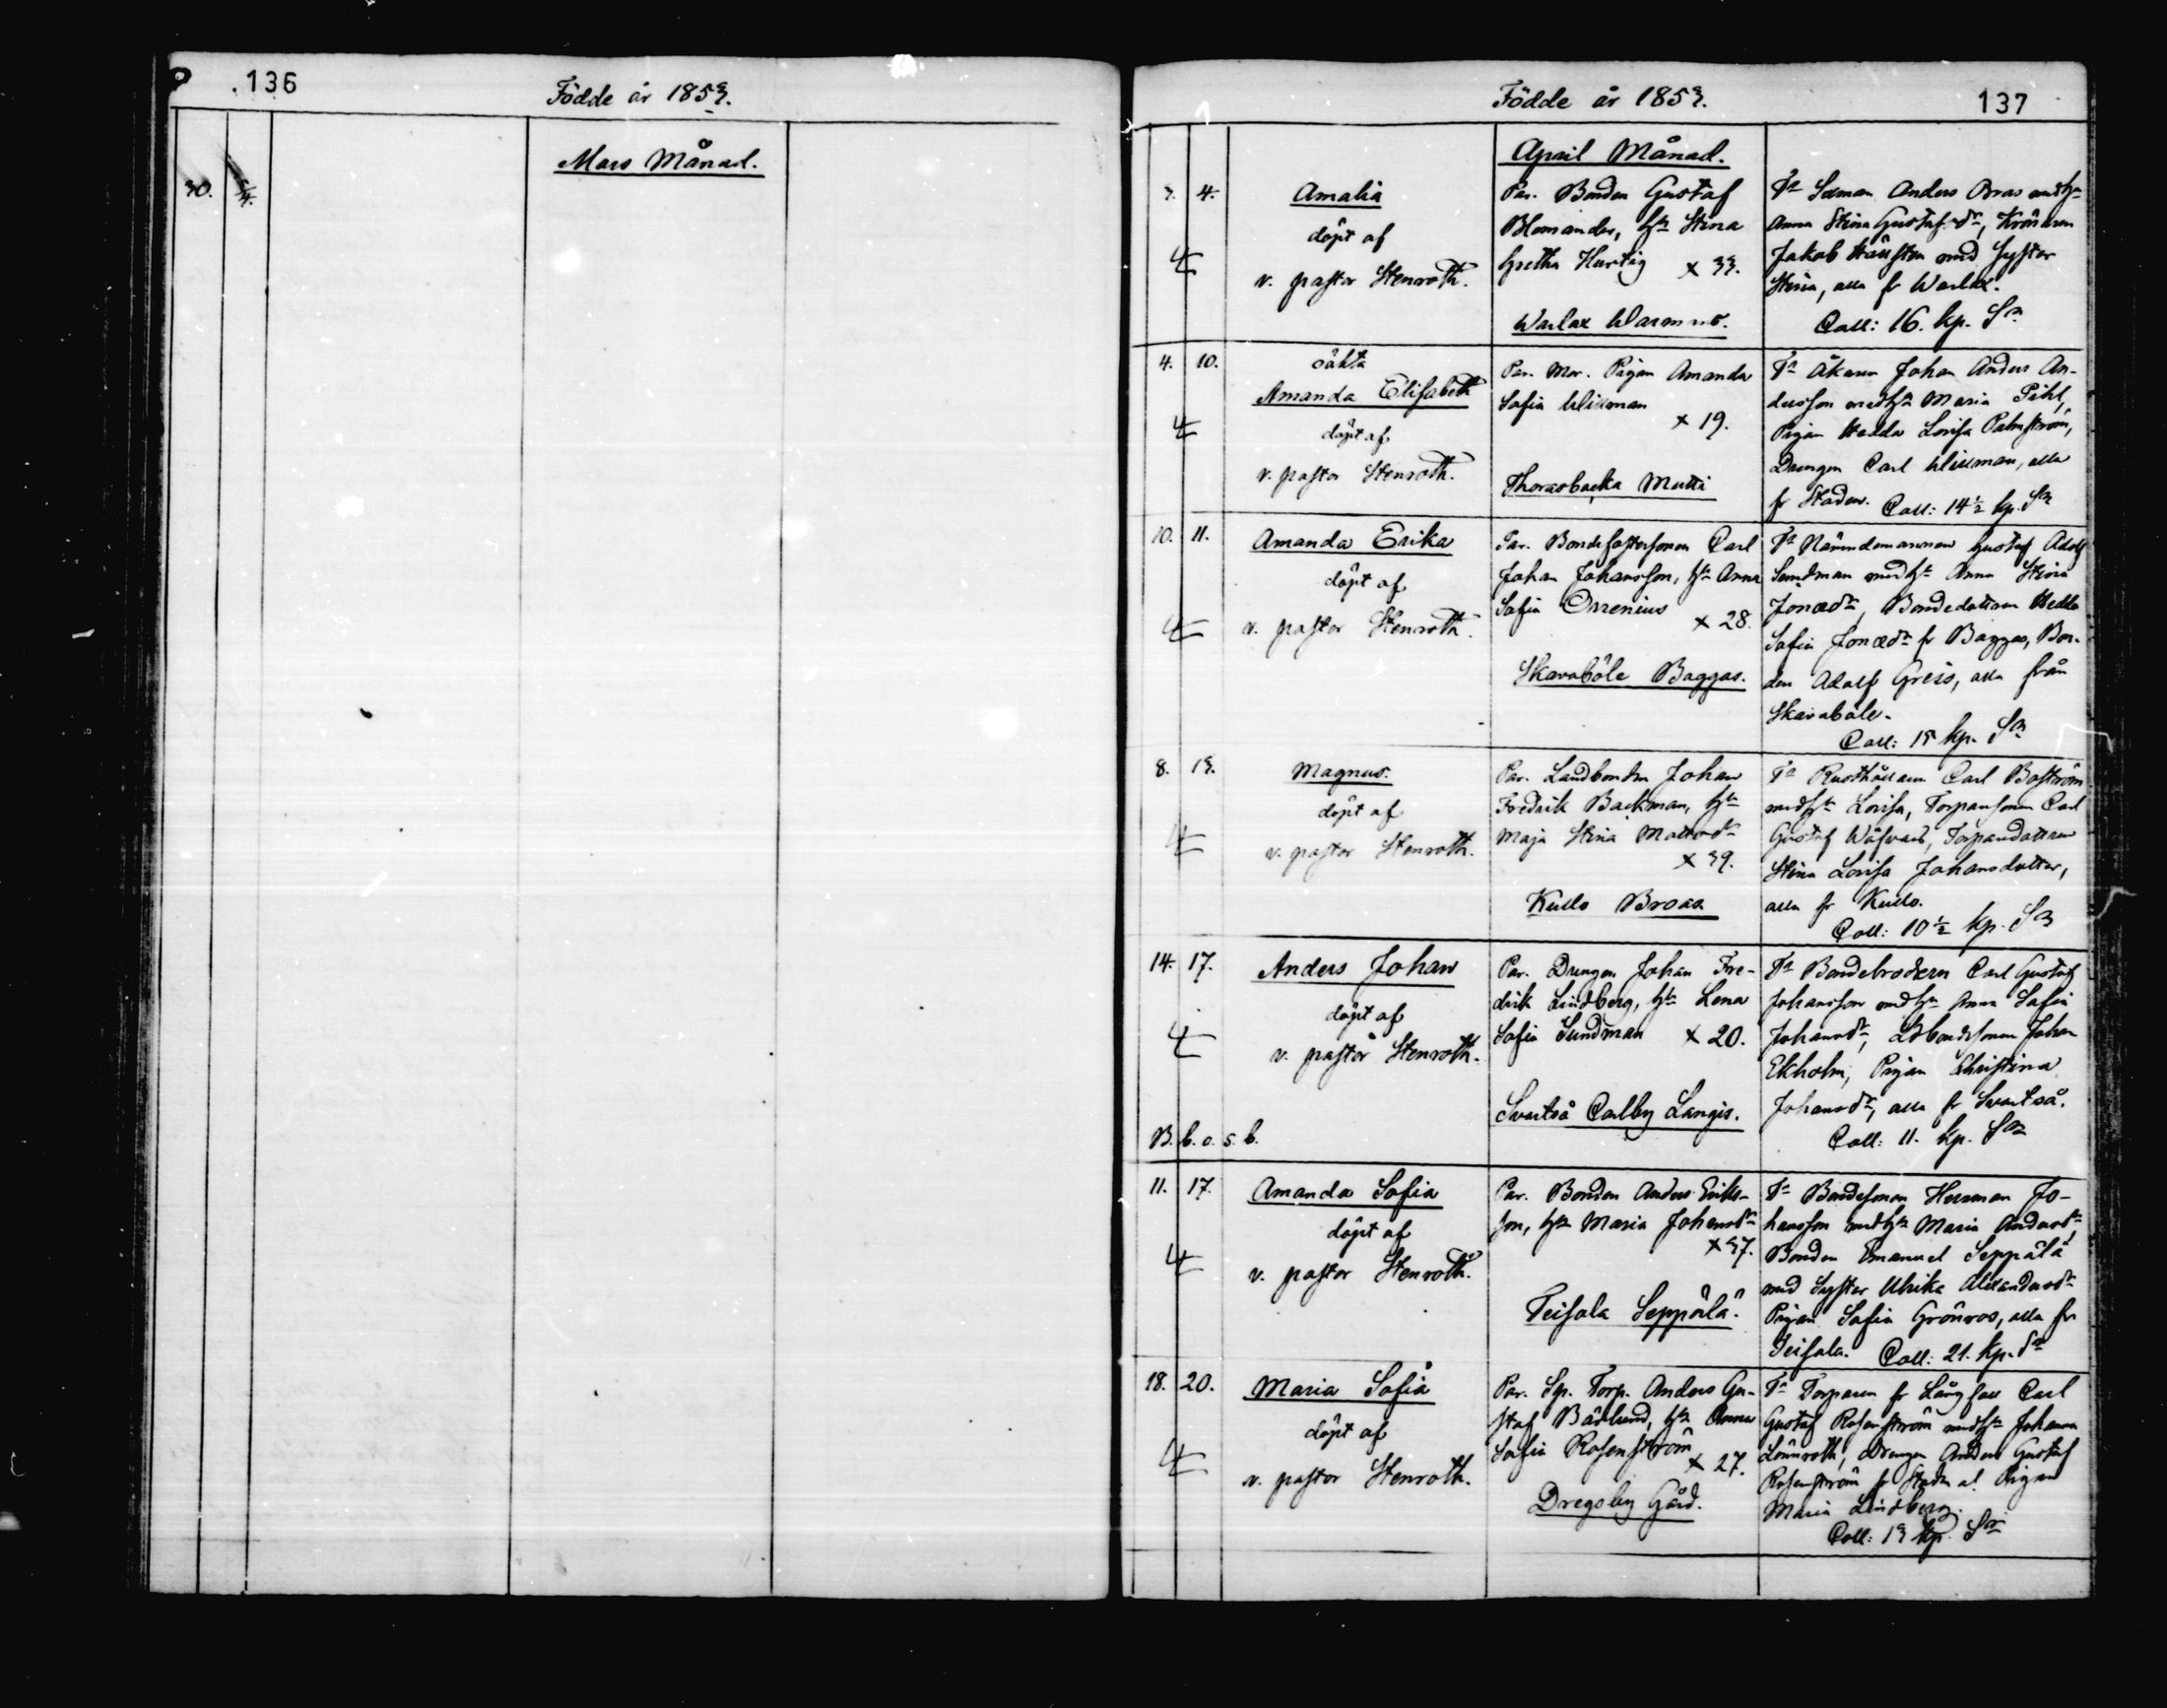 136
Födde år 1853.
Mars Månad.
30. 3/4.
Födde år 1853.
137
April Månad.
3. 4.
Amalia
döpt af
v. pastor Stenroth.
Par. Bonden Gustaf
Blomander, hn Stina
Gretha Hurtig x 33.
Warlax Warmns.
Fr Anders Orras medhn
Anna Stina Gustafsdr,
Jakob med syster
Stina, alla fr Warlax.
Coll: 16. kp. Sr
4. 10.
oäkta
Amanda Elisabeth
döpt af
v. pastor Stenroth.
Par. Mor. Pigan Amanda
Sofia Willman
x 19.
Thorasbacka Mutti
Fr Åkaren Johan Anders An-
dersson medhn Maria Pihl,
Pigan Hedda Lovisa Palmström,
Drengen Carl Willman, alla
fr Staden. Coll: 14½ kp. Sr
10. 11.
Amanda Erika
döpt af
v. pastor Stenroth.
Par. Carl
Johan Johansson, hn Anna
Sofia Orrenius
x 28.
Skavaböle Baggas.
Fr Nämndemannen Gustaf Adolf
Sundman medhn Anna Stina
Jonædr, Bondedottren Hedda
Sofia Jonædr fr Baggas, Bon-
den Adolf Greis, alla från
Skavaböle.
Coll: 15 kp. Sr
8. 13.
Magnus.
döpt af
v. pastor Stenroth.
Par. Landbonden Johan
Fredrik Backman, hn
Maja Stina Mattsdr
x 39.
Kullo Broas
Fr Rusthållaren Carl Boström
medhn Lovisa, Torparsonen Carl
Gustaf Torparedottren
Stina Lovisa Johansdotter,
alla fr Kullo.
Coll: 10½ kp. Sr
14. 17.
Anders Johan
döpt af
v. pastor Stenroth.
B. b. o. s. b.
Par. Drengen Johan Fre-
drik Lindberg, hn Lena
Sofia Sundman x 20.
Svartså Carlby Langis.
Fr Bondebrodern Carl Gustaf
Johansson medhn Anna Sofia
Johansdr, Johan
Ekholm, Pigan Christina
Johansdr, alla fr Svartså.
Coll: 11. kp. Sr
11. 17.
Amanda Sofia
döpt af
v. pastor Stenroth.
Par. Bonden Anders Eriks-
son, hn Maria Johansdr
x 37.
Teisala Seppälä.
Fr Bondesonen Herman Jo-
hansson medhn Maria Andersdr,
Bonden Emanuel Seppälä
med Syster Ulrika Alexandersdr
Pigan Sofia Grönroos, alla fr
Teisala. Coll: 21. kp. Sr
18. 20.
Maria Sofia
döpt af
v. pastor Stenroth.
Par. Sp. Torp. Anders Gu-
staf Bäcklund, hn Anna
Sofia Rosenström
x 27.
Dregsby Gård.
Fr Torparen fr Carl
Gustaf Rosenström medhn Johanna
Lönnroth, Drengen Anders Gustaf
Rosenström fr Staden o. Pigan
Maria Lindberg.
Coll: 13 kp. Sr